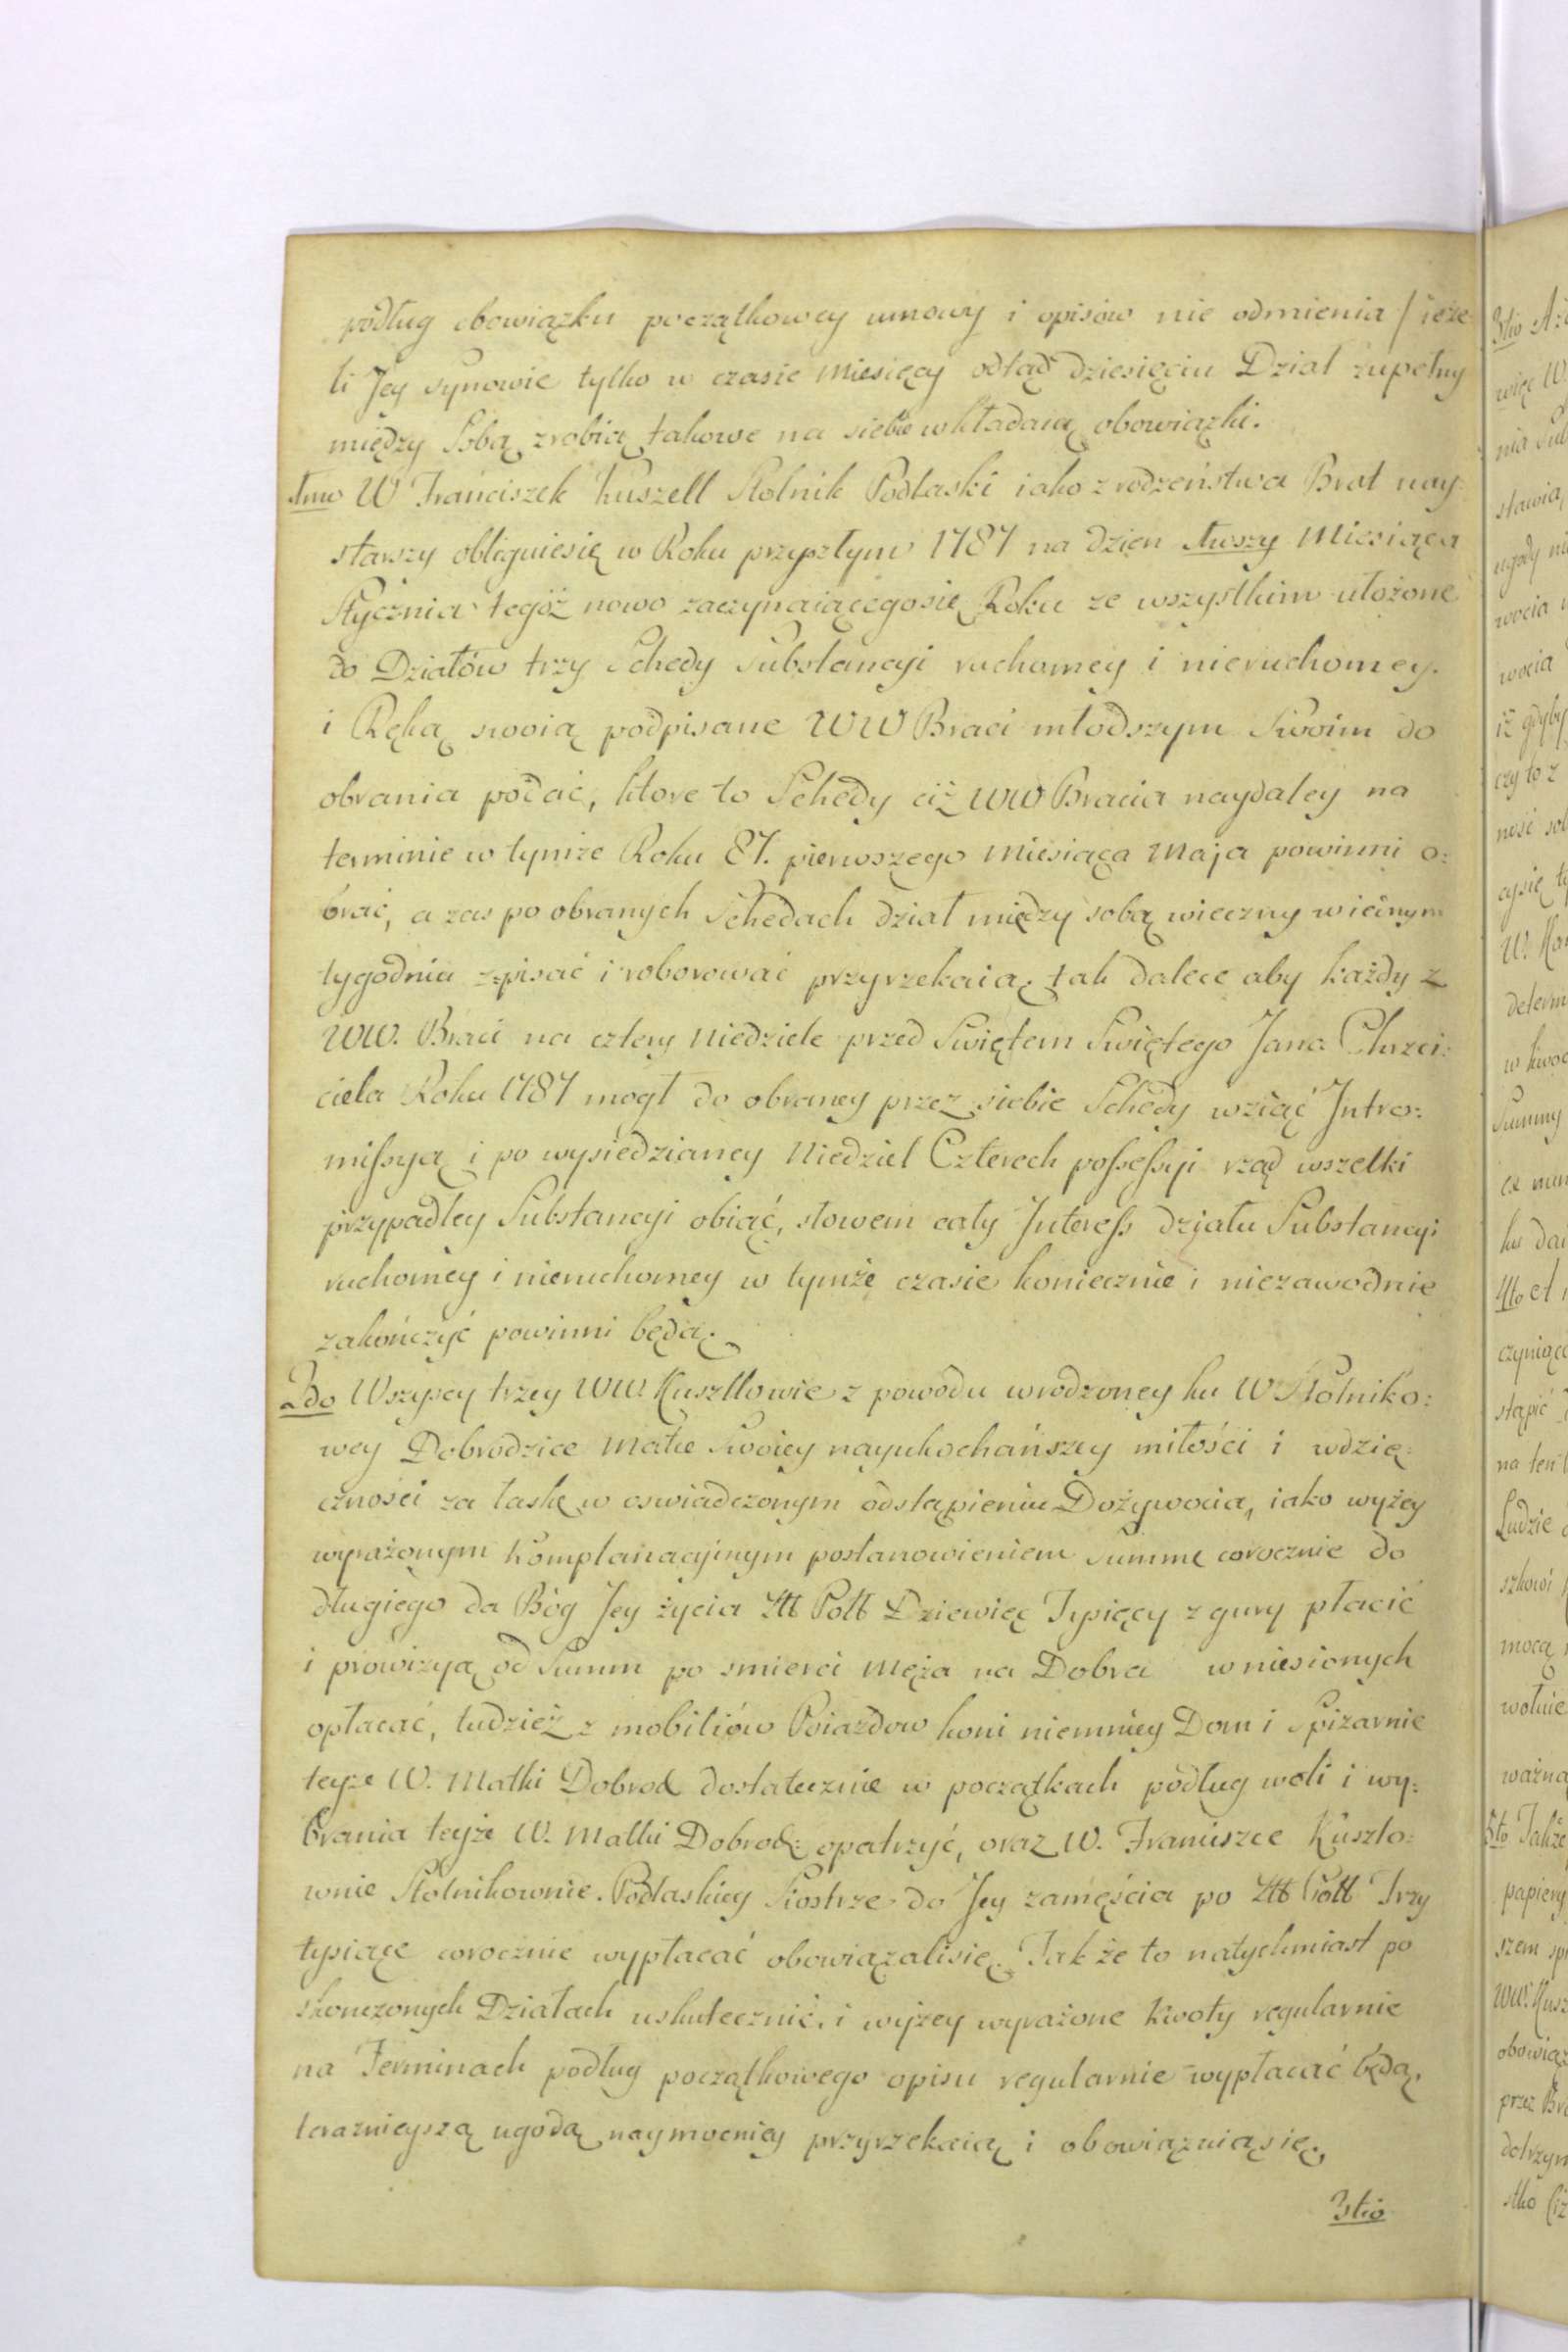 podług obowiązku początkowey umowy i opisów nie odmienia / ieże-
li Jey Synowie tylko w czasie Miesięcy odtąd dziesięciu Dział zupełny
między Sobą zrobią takowe na siebie wkładaią obowiązki.
1mo W Franciszek Kuszell Stolnik Podlaski iako z rodzeństwa Brat nay:
starszy obliguiesię w Roku przyszłym 1787 na dzien 1wszy Miesiąca
Stycznia tegoż nowo zaczynaiącegosię Roku ze wszystkim ułożone
do Działów trzy Schedy Substancyi ruchomey i nieruchomey.
i Ręką swoią podpisane WW Braci młodszym Swoim do
obrania podać, ktore to Schedy ciż WW Bracia naydaley na
terminie w tymże Roku 87. pierwszego Miesiąca Maja powinni o:
brać, a zas po obranych Schedach dział między sobą wieczny w iednym
tygodniu spisać i roborować przyrzekaią, tak dalece aby każdy z
WW. Braci na cztery Niedziele przed Swiętem Swiętego Jana Chrzci:
ciela Roku 1787 mogł do obraney przez siebie Schedy wziąć Intro:
missyą i po wysiedzianey Niedziel Czterech possessyi rząd wszelki
przypadłey Substancyi obiąć, słowem cały Interess działu Substancyi
ruchomey i nieruchomey w tymże czasie koniecznie i niezawodnie
zakończyć powinni będą.
2do Wszyscy trzey WW. Kuszllowie z powodu wrodzoney ku W Stolniko:
wey Dobrodzice Matce Swoiey nayukochańszey miłości i wdzię:
czności za łaskę w oswiadczonym odstąpieniu Dożywocia, iako wyżey
wyrażonym Komplanacyinym postanowieniem Summę corocznie do
długiego da Bóg Jey życia Złł Polł Dziewięć Tysięcy z gury płacić
i prowizyą od Summ po smierci Męża na Dobra wniesionych
opłacać, tudzież z mobiliów Poiazdow koni niemniey Dom i Spizarnie
teyże W. Matki Dobrod dostatecznie w początkach podług woli i wy:
brania teyże W. Matki Dobrodz: opatrzyć, oraz W. Franciszce Kuszlo:
wnie Stolnikownie Podlaskiey Siostrze do Jey zamęścia po Złł Polł Trzy
tysiące corocznie wypłacać obowiązalisię. Jak że to natychmiast po
skonczonych Działach uskutecznić, i wyżey wyrażone kwoty regularnie
na Terminach podług początkowego opisu regularnie wypłacać będą,
teraznieyszą ugodą naymocniey przyrzekaią i obowiązuiąsię,
3tio